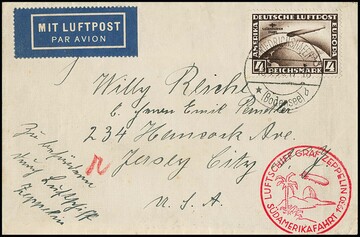 MIT LUFTPOST
PAR AVION
DEUTSCHE LUFTPOST
AMERIKA
EUROPA
4 REICHSMARK 4
FRIEDRICHSHAFEN
(Bodensee)
Willy Reichl
c/o Herrn Emil
234 Hancock Ave.
Jersey City
U.S.A.
Zu befördern
durch Luftschiff
Zeppelin
LUFTSCHIFF GRAF ZEPPELIN
SÜDAMERIKAFAHRT 1930